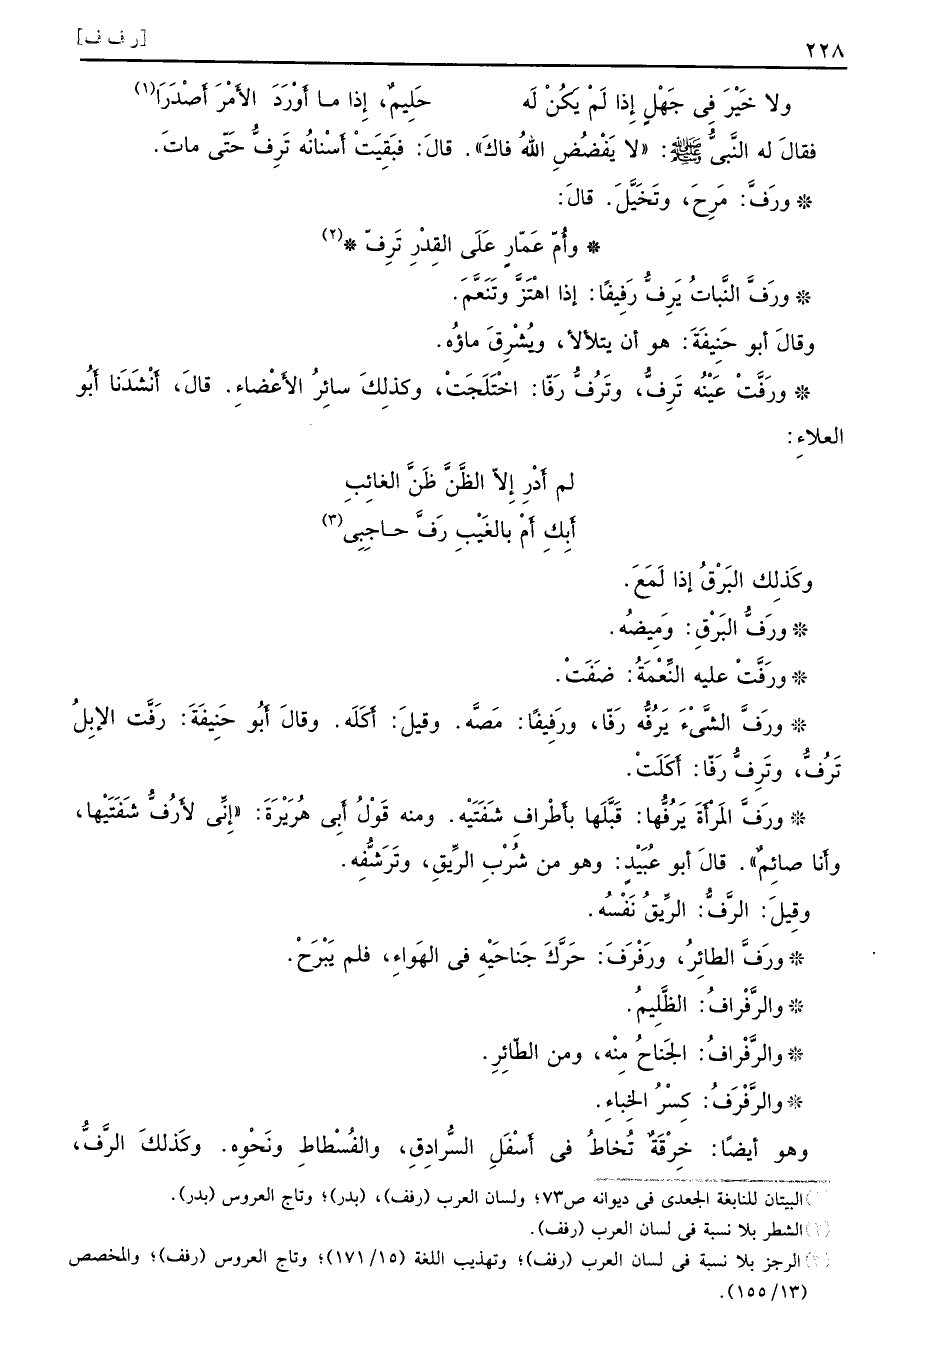 ٢٢٨ [ر ف ف]
ولا خَيْرَ فِى جَهْلٍ إذا لَمْ يَكُنْ لَه حَلِيمٌ، إذا ما أَوْرَدَ الأَمْرَ أَصْدَرَا(١)
فقالَ له النَّبىُّ ﷺ: «لا يَفْضُضِ اللهُ فاكَ». قالَ: فبَقِيَتْ أَسْنانُه تَرِفُّ حَتّى ماتَ.
* ورَفَّ: مَرِحَ، وتَخَيَّلَ. قالَ:
* وأُمّ عَمّارٍ عَلَى القِدْرِ تَرِفّ *(٢)
* ورَفَّ النَّباتُ يَرِفُّ رَفِيفًا: إذا اهْتَزَّ وتَنَعَّمَ.
وقالَ أبو حَنِيفَةَ: هو أن يتلألأ، ويُشْرِقَ ماؤُه.
* ورَفَّتْ عَيْنُه تَرِفُّ، وتَرُفُّ رَفّا: اخْتَلَجَتْ، وكذلِكَ سائرُ الأَعْضاءِ. قالَ، أَنْشَدَنا أَبُو
العلاءِ:
لم أَدْرِ إلاّ الظَّنَّ ظَنَّ الغائبِ
أَبِكِ أَمْ بالغَيْبِ رَفَّ حاجِبِى(٣)
وكَذلِك البَرْقُ إذا لَمَعَ.
* ورَفُّ البَرْقِ: وَمِيضُه.
* ورَفَّتْ عليه النِّعْمَةُ: ضَفَتْ.
* ورَفَّ الشَّىْءَ يَرُفُّه رَفّا، ورَفِيفًا: مَصَّه. وقيلَ: أَكَلَه. وقالَ أَبُو حَنِيفَةَ: رَفَّت الإبلُ
تَرُفُّ، وتَرِفُّ رَفّا: أَكَلَتْ.
* ورَفَّ المَرْأَةَ يَرُفُّها: قَبَّلَها بأَطْرافِ شَفَتَيْه. ومنه قَوْلُ أَبِى هُرَيْرَةَ: «إنِّى لأَرُفُّ شَفَتَيْها،
وأَنا صائِمٌ». قالَ أبو عُبَيْدٍ: وهو من شُرْبِ الرِّيقِ، وتَرَشُّفِه.
وقِيلَ: الرَّفُّ: الرِّيقُ نَفْسُه.
* ورَفَّ الطائرُ، ورَفْرَفَ: حَرَّكَ جَناحَيْهِ فى الهَواءِ، فلم يَبْرَحْ.
* والرَّفْرافُ: الظَّلِيمُ.
* والرَّفْرافُ: الجَناحُ مِنْه، ومن الطّائِرِ.
* والرَّفْرَفُ: كِسْرُ الخِباءِ.
وهو أيضًا: خِرْقَةٌ تُخاطُ فى أَسْفَلِ السُّرادِقِ، والفُسْطاطِ ونَحْوِه. وكَذلكَ الرَّفُّ،
(١) البيتان للنابغة الجعدى فى ديوانه ص٧٣؛ ولسان العرب (رفف)، (بدر)؛ وتاج العروس (بدر).
(٢) الشطر بلا نسبة فى لسان العرب (رفف).
(٣) الرجز بلا نسبة فى لسان العرب (رفف)؛ وتهذيب اللغة (١٥/ ١٧١)؛ وتاج العروس (رفف)؛ والمخصص
(١٣/ ١٥٥).